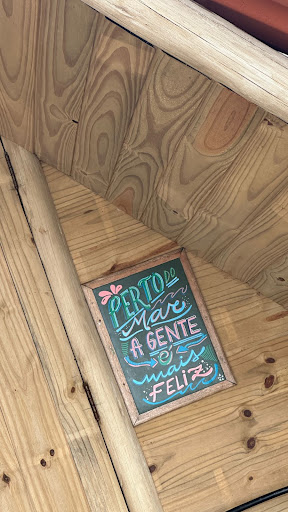 PERTO DO
Mar
A GENTE
É
mais
FELIZ